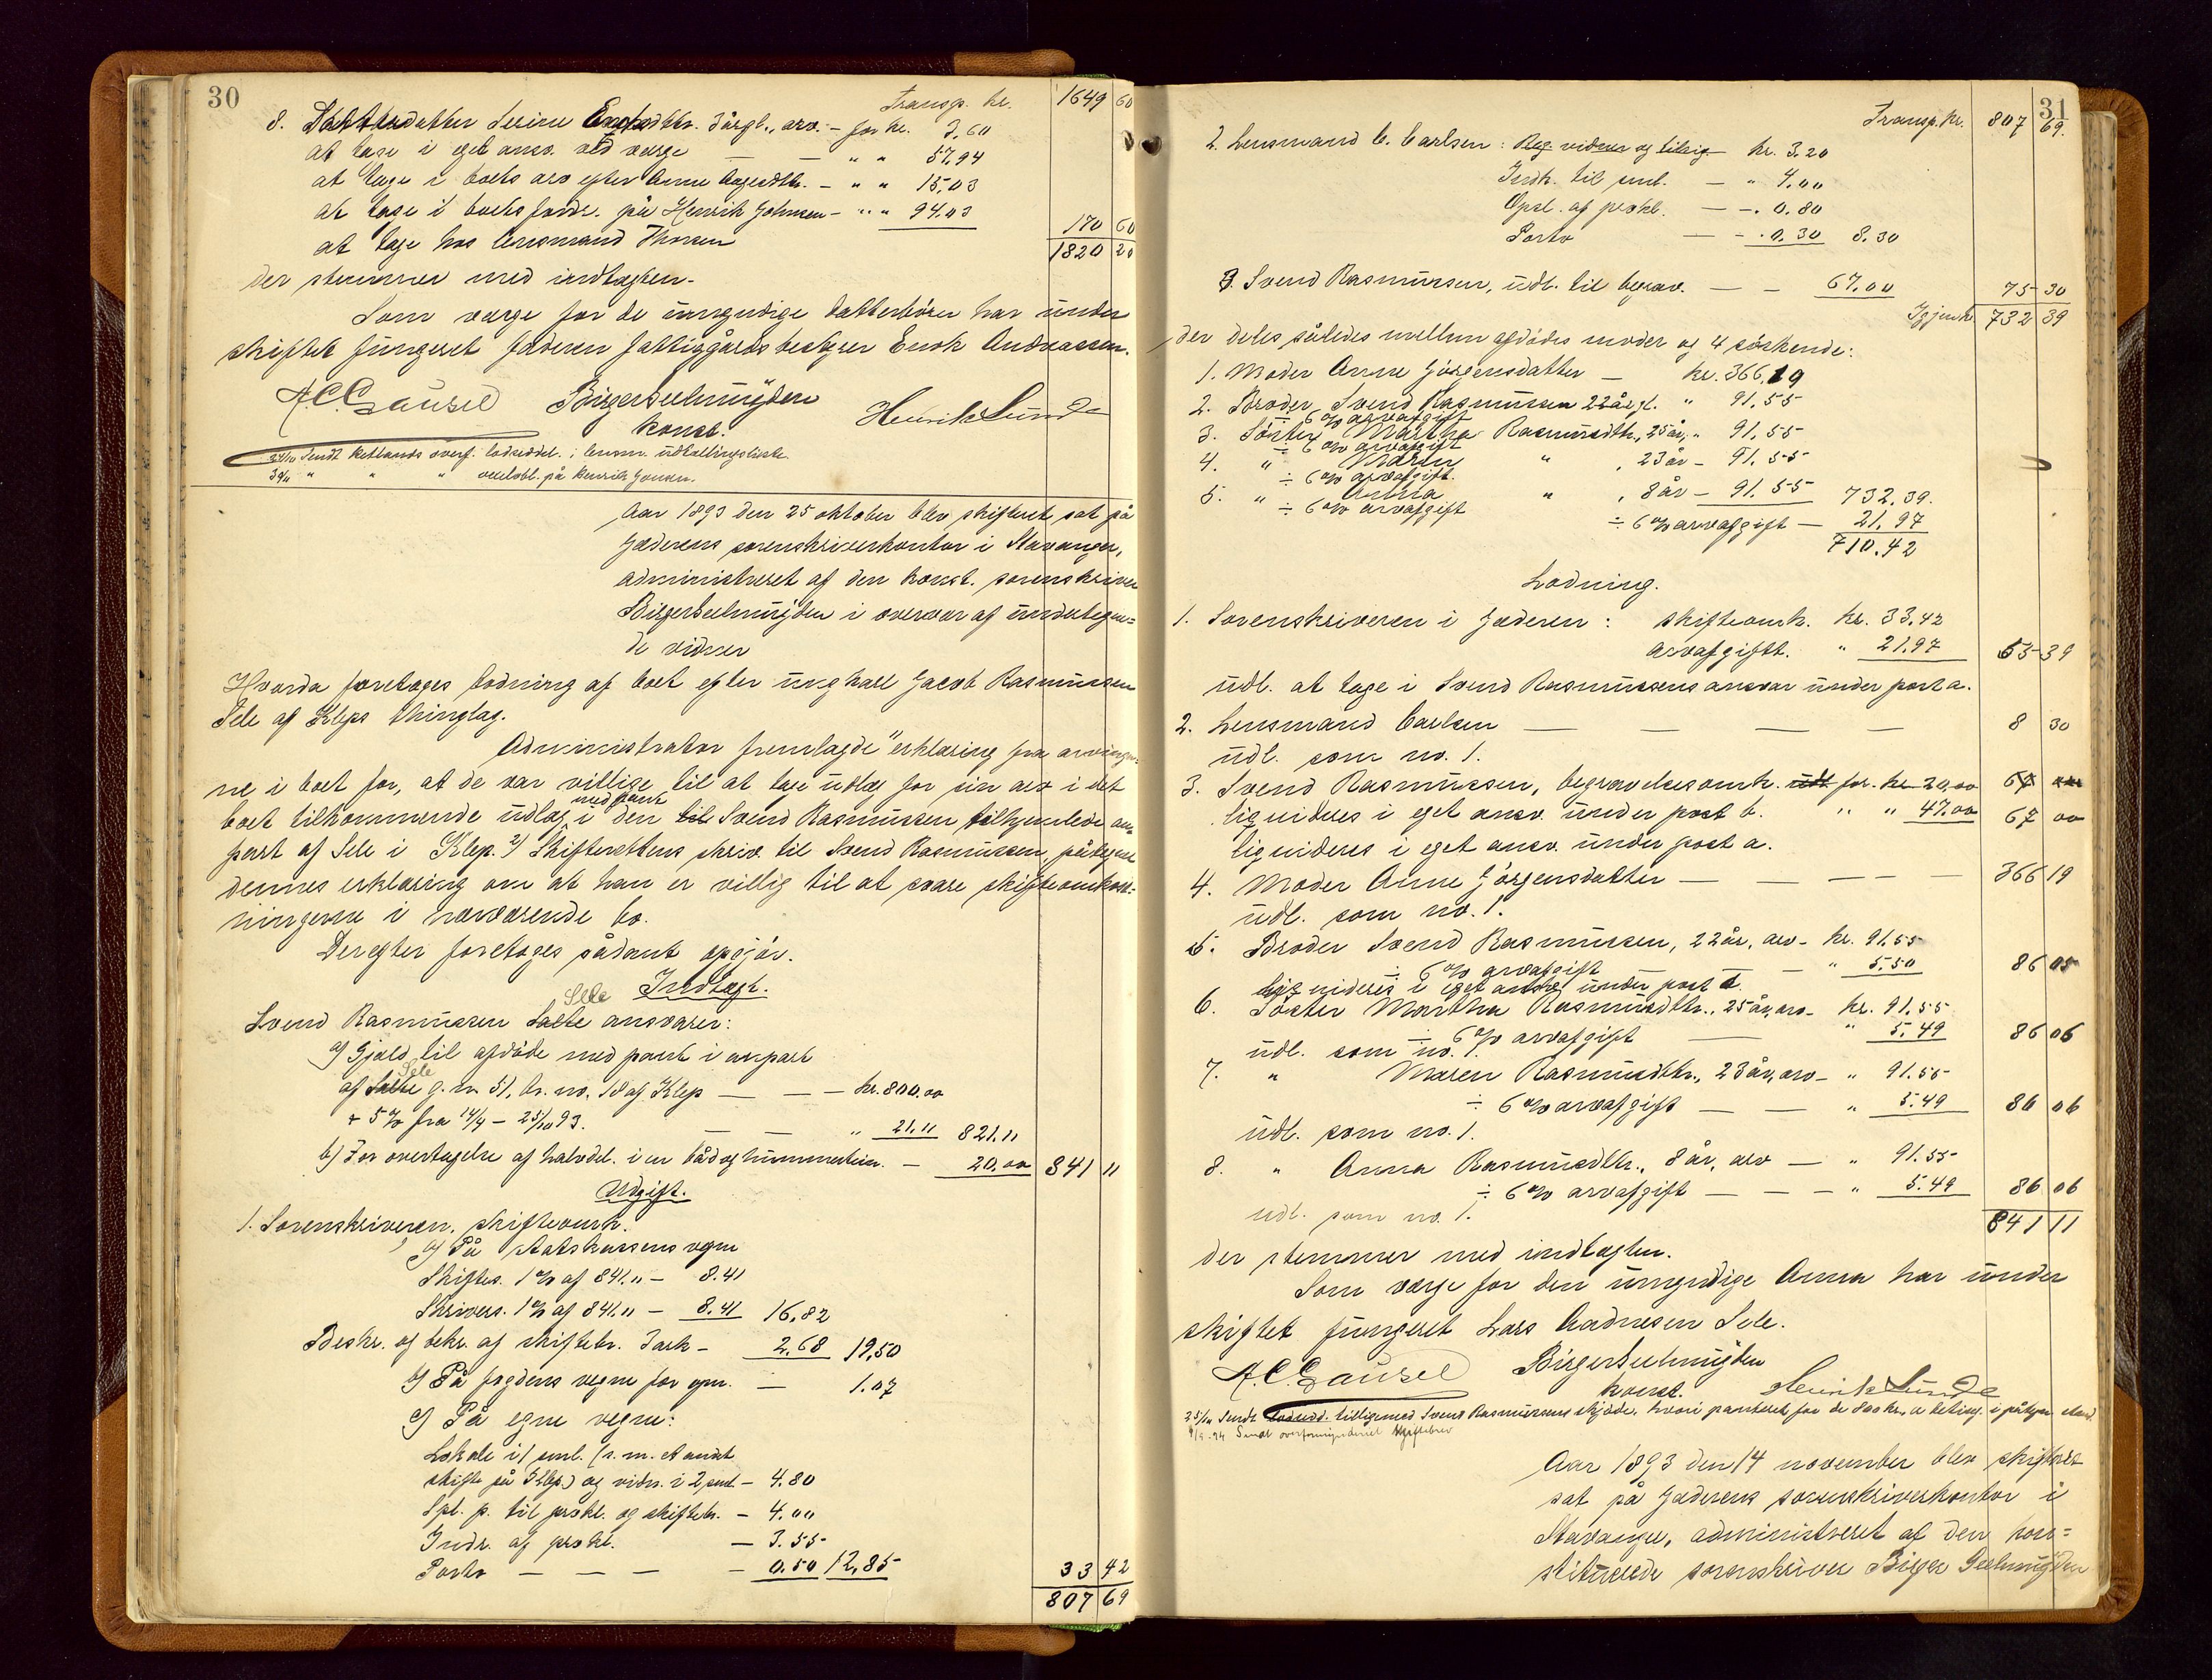 30
Transp. kr. 1649 60
8. Datterdatter Serine Enoksdttr. 3årgl., arv. - for kr. 3,60
at tage i eget ansv. ved værge — — " " 57,94
at tage i boets arv efter Anne Aagesdtr. - " " 15,03
at tage i boets fordr. på Henrik Johnsen - " " 94,03 170 60
at tage hos lensmand Thorsen 1820 20
der stemmer med indtægten.
Som værge for de umyndige datterbörn har under
skiftet fungeret faderen fattiggårdsbestyrer Enok Andreassen.
A.C. Gausel Birger Seehuusen Henrik Lunde
konst.
Sendt Ketlands overf. lodseddel.
30/11 " " " på Henrik Jonsen.
Aar 1893 den 25 oktober blev skifteret sat på
Jæderens sorenskriverkontor i Stavanger,
administreret af den konst. sorenskriver
Birger i overvær af undertegne=
de vidner
Hvorda foretoges lodning af boet efter ungkarl Jacob Rasmussen
Sele af Kleps thinglag.
Administrator fremlagde 1) erklæring fra arvinger-
ne i boet for, at de var villige til at tage udlæg for sin arv i det
boet tilkommende udlæg i den til Svend Rasmussen tilhjemlede an-
med pant
part af Sele i Klep. 2) Skifterettens skriv. til Svend Rasmussen, påtegnet
dennes erklæring om at han er villig til at svare skifteomkost-
ningerne i nærværende bo.
Derefter foretoges sådant opgjör.
Indtægt.
Sele
Svend Rasmussen Salte ansvarer:
a) Gjæld til afdöde med pant i anpart
Sele
af Salte g. n. 51, br. no. 18 af Klep — — — kr. 800.00
+ 5 % fra 14/4 - 25/10 93. — — " 21.11 821.11
b) For overtagelse af halvdel. i en båd og hummertein. — 20.00 841 11
Udgift.
1. Sorenskriveren, skifteomk.
a) På statskassens vegne
Skiftes. 1 % af 841.11 - 8.41
Skrivers. 1 % af 841.11 - 8.41 16,82
Beskr. og bekr. af skiftebr. 3 ark - 2,68 19,50
b) På fogdens vegne for opn. — 1.07
c) På egne vegne:
Lokale i 1 saml. (s. m. st andet
skifte på Klep.) og vidn. i 2 saml. - 4.80
Spl. p. til prokl. og skiftebr. - 4.00
Indr. af prokl. — 3.55
Porto — — — — 0.50 12,85 33 42
807 69
31
Transp. kr. 807 69.
2. Lensmand C. Carlsen: Reg. vidner og tilsig. — kr. 3.20
Indk. til saml. — " 4.00
Opsl. af prokl. — — . 0.80
Porto — — . 0.30 8.30
3. Svend Rasmussen, udl. til begrav. — — 67.00 75 30
Igjenh 732 39
der deles således mellem afdödes moder og 4 söskende:
1. Moder Anne Jörgensdatter — kr. 366.19
2. Broder Svend Rasmussen 22årgl. " 91.55
÷ 6 % arvafgift
3. Söster Martha Rasmusdtr., 25 år, " 91.55
÷ 6 % arvafgift
4. " Maren " , 23 år - 91.55
÷ 6 % arvafgift.
5. " Anna " , 8 år - 91.55 732,39.
÷ 6 % arvafgift ÷ 6 % arvafgift — 21,97
710.42
Lodning.
1. Sorenskriveren i Jæderen: skifteomk. kr. 33,42
arvafgift. " 21,97 55 39
udl. at tage i Svend Rasmussens ansvar under post a.
2. Lensmand Carlsen — — — — 8 30
udl. som no. 1.
3. Svend Rasmussen, begravelsesomk. udl for. kr. 20,00 67 00
liqvideres i eget ansv. under post b. " " 47.00 67 00
liqvideres i eget ansv. under post a.
4. Moder Anne Jörgensdatter — — — — 366 19
udl. som no. 1.
5. Broder Svend Rasmussen, 22 år, arv - kr. 91.55
÷ 6 % arvafgift — — " 5.50 86 05
liqvideres i eget ansvar under post a.
6. Söster Martha Rasmusdtr., 25 år, arv - kr. 91.55
÷ 6 % arvafgift — " 5.49 86 06
udl. som no. 1.
7. " Maren Rasmusdtr., 23 år, arv - " 91.55
÷ 6 % arvafgift — — " 5.49 86 06
udl. som no. 1.
8. " Anna Rasmusdtr., 8 år, arv — " 91.55
÷ 6 % arvafgift — — — " 5.49 86 06
udl. som no. 1. 841 11
der stemmer med indtægten.
Som værge for den umyndige Anna har under
skiftet fungeret Lars Aadnesen Sele.
A.C. Gausel Birger Henrik Lunde
konst.
25/10 Sendt lodsedd. tilligemed Svend Rasmussens skjöde, hvori panteret for de 800 kr.
Sendt overformynderiet skiftebrev
Aar 1893 den 14 november blev skifteret
sat på Jæderens sorenskriverkontor i
Stavanger, administreret af den kon=
stituerede sorenskriver Birger